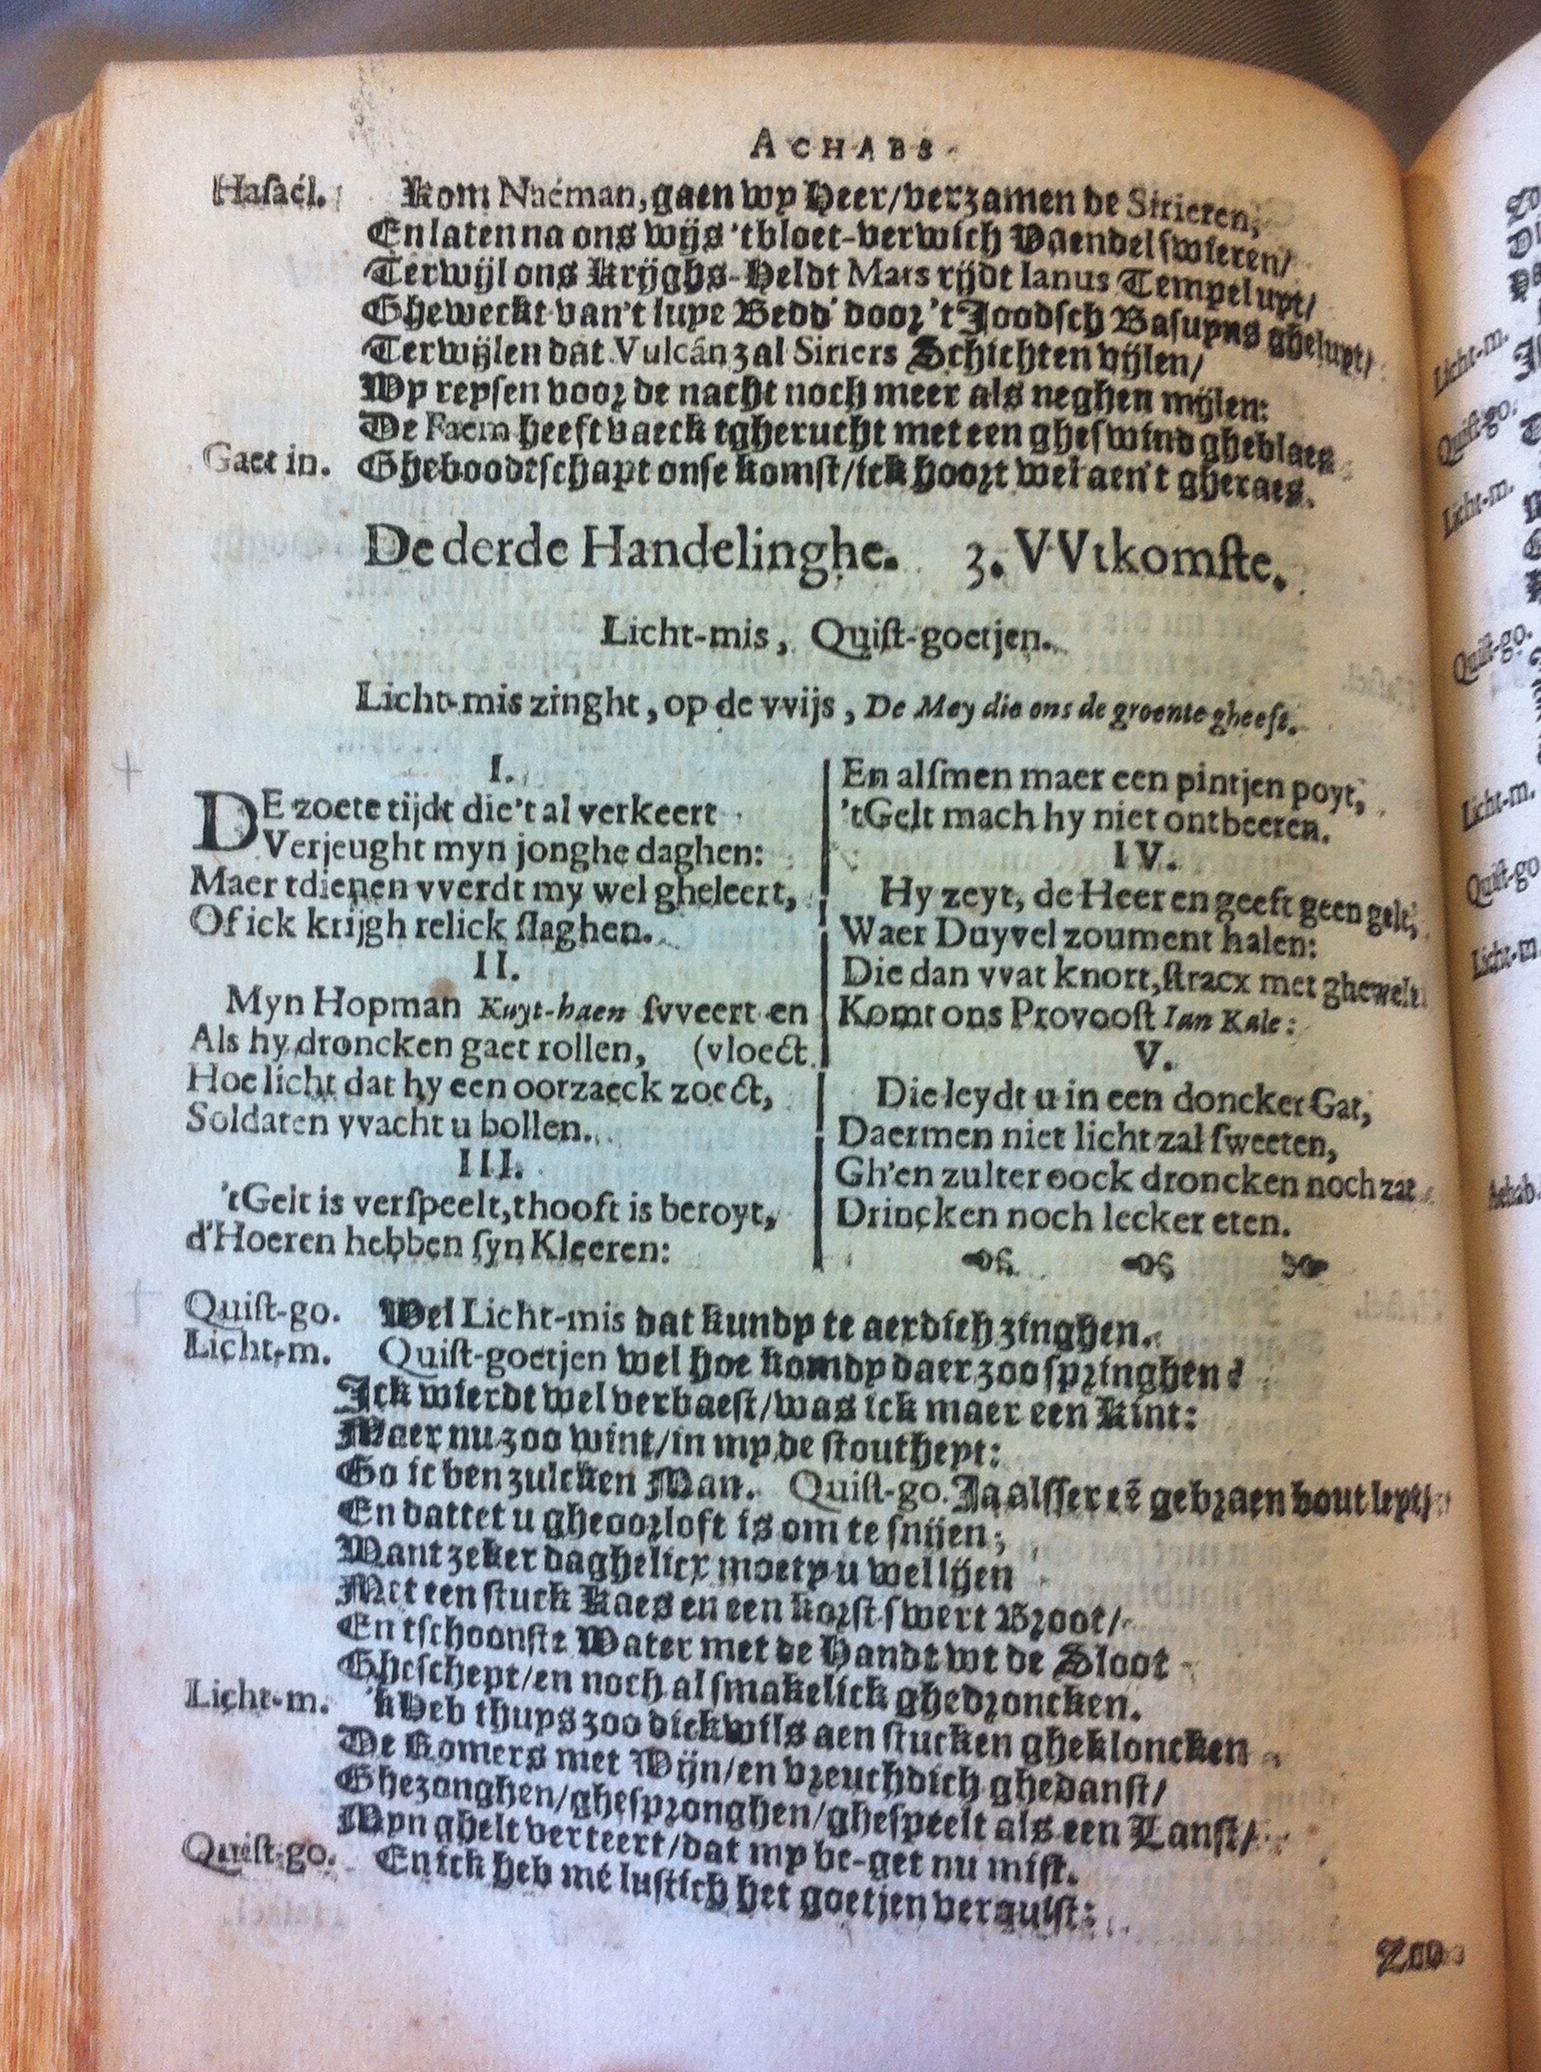 ACHABS
Hasaël. Kom Naéman, gaen wy Heer/verzamen de Sirieren,
En laten na ons wijs 'tbloet-verwich Vaendel swieren/
Terwijl ons Krijghs-Heldt Mars rijdt Ianus Tempel uyt/
Gheweckt van't luye Bedd' door 't Joodsch Basuyns gheluyt/
Terwijlen dat Vulcán zal Siriers Schichten vijlen/
Wy reysen voor de nacht noch meer als neghen mijlen:
De Faem heeft vaeck tgherucht met een gheswind gheblaes
Gaet in. Gheboodtschapt onse komst/ick hoort wel aen't gheraes.
De derde Handelinghe. 3. VVtkomste.
Licht-mis, Quist-goetjen.
Licht-mis zinght, op de vvijs, De Mey die ons de groente gheeft.
I.
DE zoete tijdt die't al verkeert
Verjeught myn jonghe daghen:
Maer tdienen vverdt my wel gheleert,
Of ick krijgh relick slaghen.
II.
Myn Hopman Kuyt-haen svveert en
Als hy droncken gaet rollen, (vloect
Hoe licht dat hy een oorzaeck zoect,
Soldaten vvacht u bollen.
III.
'tGelt is verspeelt, thooft is beroyt,
d'Hoeren hebben syn Kleeren:
En alsmen maer een pintjen poyt,
'tGelt mach hy niet ontbeeren.
IV.
Hy zeyt, de Heer en geeft geen gelt,
Waer Duyvel zoument halen:
Die dan vvat knort, stracx met ghewelt
Komt ons Provoost Ian Kale:
V.
Die leydt u in een doncker Gat,
Daermen niet licht zal sweeten,
Gh'en zulter oock droncken noch zat
Drincken noch lecker eten.
Quist-go. Wel Licht-mis dat kundy te aerdich zinghen.
Licht-m. Quist-goetjen wel hoe komdy daer zoo springhen?
Ick wierdt wel verbaest/was ick maer een Kint:
Maer nu zoo wint/in my de stoutheyt:
Go ic ben zulcken Man. Quist-go. Ja alsser eē gebraen bout leyt/
En dattet u gheoorloft is om te snijen;
Want zeker daghelicx moety u wel lijen
Met een stuck Kaes en een korst swert Broot/
En tschoonste Water met de Handt wt de Sloot
Gheschept/en noch al smakelick ghedroncken.
Licht-m. 'k Heb thuys zoo dickwils aen stucken ghekloncken
De Romers met Wijn/en vreuchdich ghedanst/
Ghezonghen/ghespronghen/ghespeelt als een Lanst/
Myn ghelt verteert/dat my be-get nu mist.
Quist-go. En ick heb mé lustich het goetjen verquist:
Zoo